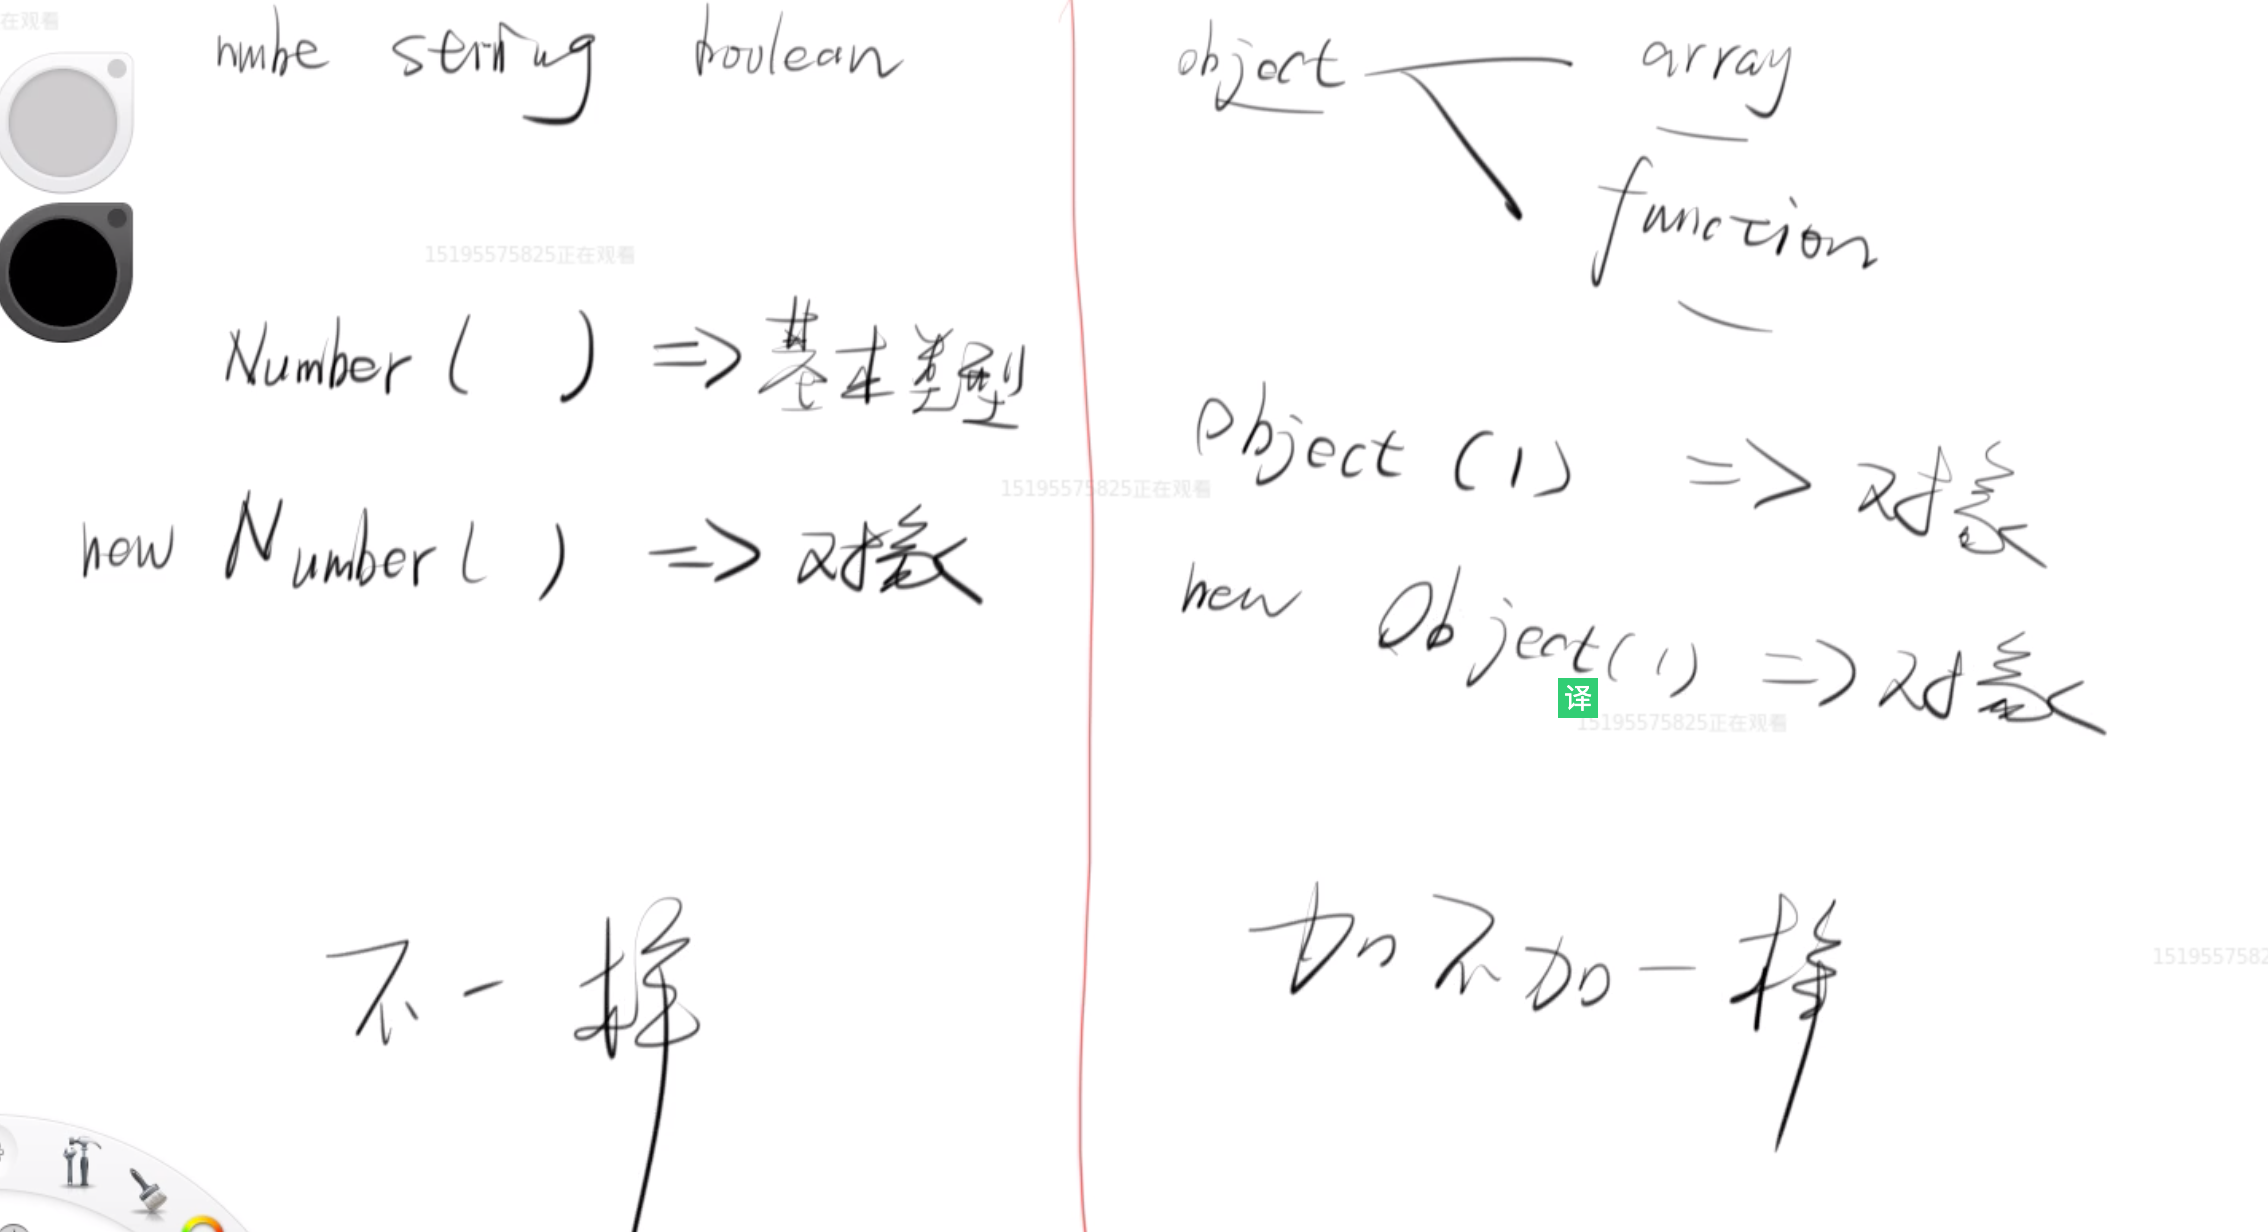 在观看
nmbe string boolean
15195575825正在观看
Number ( ) => 基本类型
new Number ( ) => 对象
不一样
object array
function
15195575825正在观看
Object (1) => 对象
new Object (1) => 对象
译
15195575825正在观看
加不加一样
1519557582